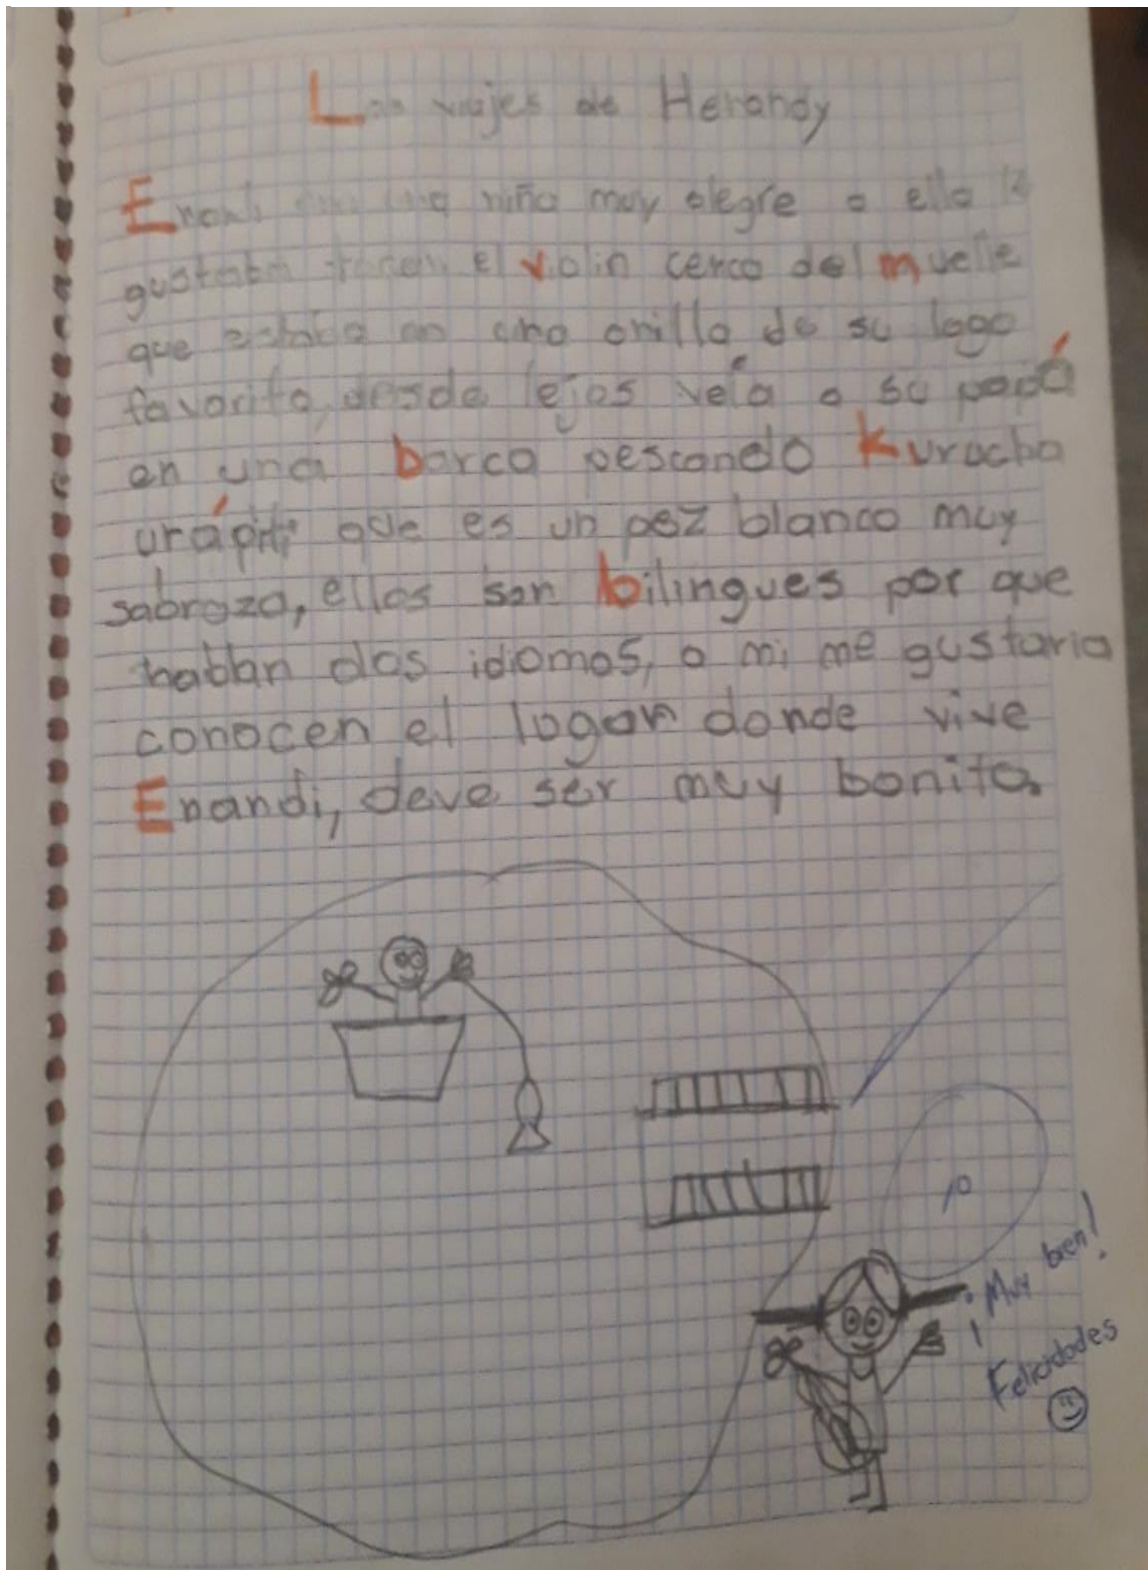 Los viajes de Herandy
Enandi era una niña muy alegre a ella le
gustaba tocar el violin cerca del muelle
que estaba en una orilla de su lago
favorito, desde lejos veía a su papá
en una barca pescando kurucha
urápiti que es un pez blanco muy
sabrozo, ellos son bilingues por que
hablan dos idiomas, a mi me gustaria
conocen el lugar donde vive
Enandi, deve ser muy bonito.
10
¡Muy bien!
Felicidades